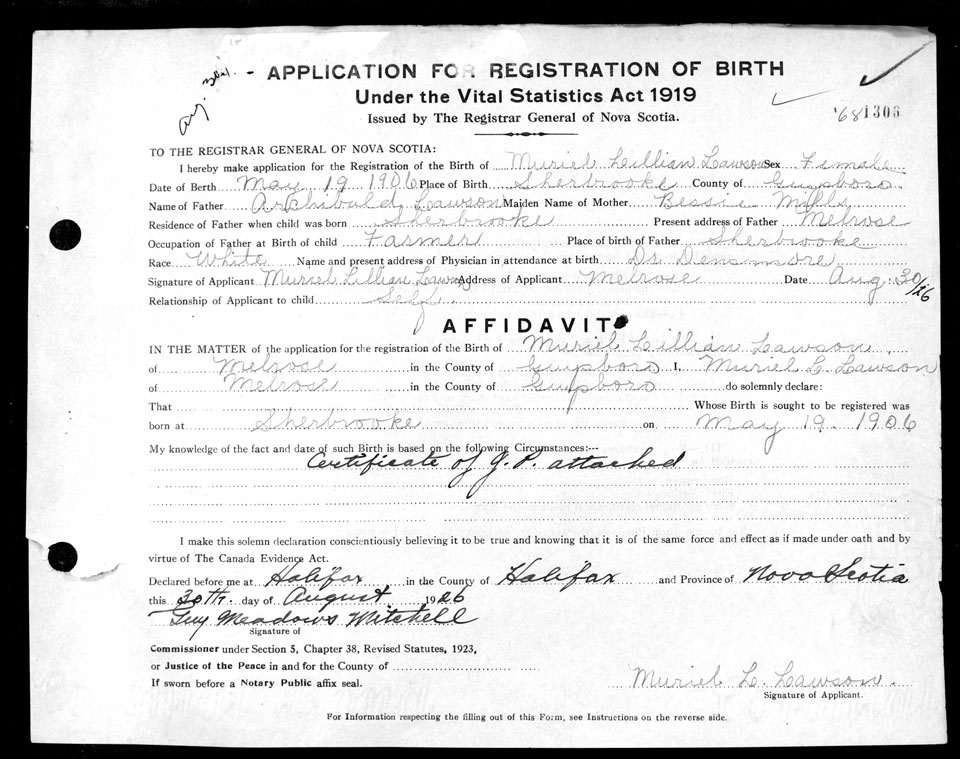 Aug. 30th. - APPLICATION FOR REGISTRATION OF BIRTH
Under the Vital Statistics Act 1919
Issued by The Registrar General of Nova Scotia.
'68 1306
TO THE REGISTRAR GENERAL OF NOVA SCOTIA:
I hereby make application for the Registration of the Birth of Muriel Lillian Lawson Sex Female
Date of Berth May 19 1906 Place of Birth Sherbrooke County of Guysboro
Name of Father Archibald Lawson Maiden Name of Mother Bessie Mills
Residence of Father when child was born Sherbrooke Present address of Father Melrose
Occupation of Father at Birth of child Farmer Place of birth of Father Sherbrooke
Race White Name and present address of Physician in attendance at birth Dr Densmore
Signature of Applicant Muriel Lillian Lawson Address of Applicant Melrose Date Aug. 30/26
Relationship of Applicant to child Self
AFFIDAVIT
IN THE MATTER of the application for the registration of the Birth of Muriel Lillian Lawson
of Melrose in the County of Guysboro I, Muriel L. Lawson
of Melrose in the County of Guysboro do solemnly declare:
That Whose Birth is sought to be registered was
born at Sherbrooke on May 19. 1906
My knowledge of the fact and date of such Birth is based on the following Circumstances:--
Certificate of J. P. attached
I make this solemn declaration conscientiously believing it to be true and knowing that it is of the same force and effect as if made under oath and by
virtue of The Canada Evidence Act.
Declared before me at Halifax in the County of Halifax and Province of Nova Scotia
this 30th. day of August 1926
Guy Meadows Mitchell
Signature of
Commissioner under Section 5, Chapter 38, Revised Statutes, 1923,
or Justice of the Peace in and for the County of
If sworn before a Notary Public affix seal.
Muriel L. Lawson.
Signature of Applicant.
For Information respecting the filling out of this Form, see Instructions on the reverse side.